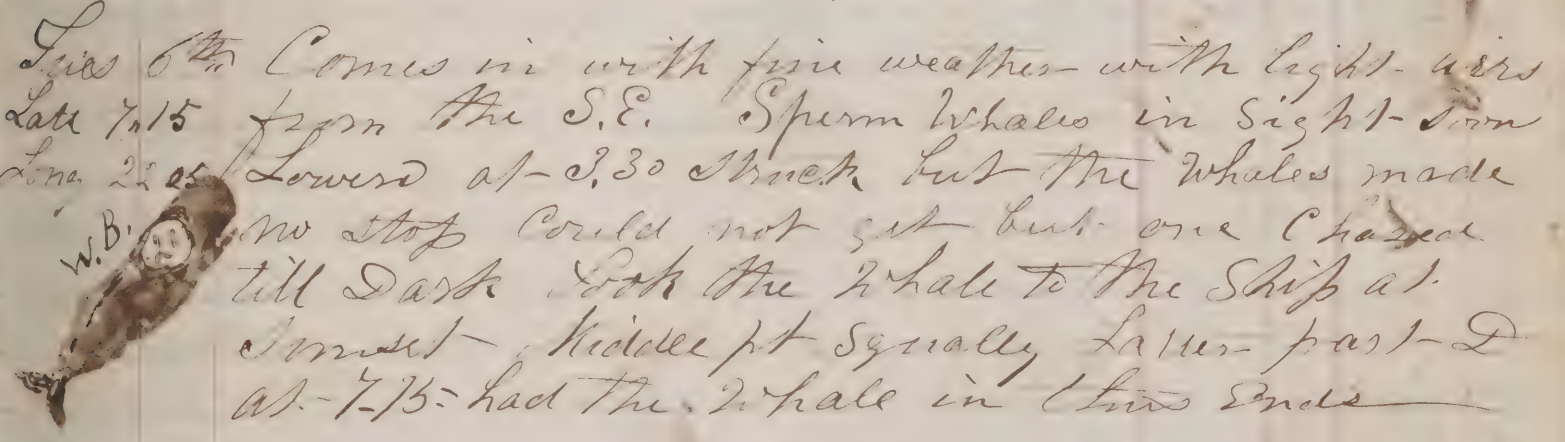 Tues 6th Comes in with fine weather with light airs
Latt 7.15 from the S.E. Sperm Whales in Sight Soon
Long 22 05 Lowerd at 3.30 Struck but the Whales made
W.B. no stop Could not get but one Chased
till Dark Took the Whale to the Ship at
Sunset Middle pt Squally Latter part D
at 7-15 had the Whale in thus Ends